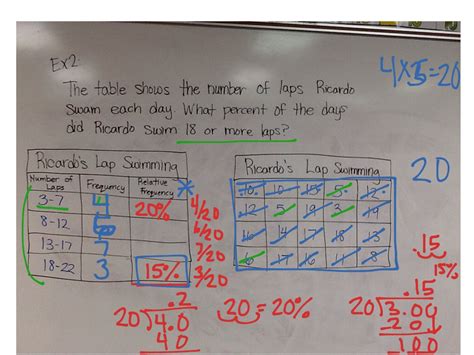 Ex2:
4×5=20
The table shows the number of laps Ricardo
swam each day. What percent of the days
did Ricardo swim 18 or more laps?
Ricardo's Lap Swimming
Number of Laps Frequency Relative Frequency
3-7 4 20% 4/20
8-12 6/20
13-17 7 7/20
18-22 3 15% 3/20
Ricardo's Lap Swimming
10 10 15 5 12
12 5 19 3 19
16 14 17 18 13
6 17 16 11 8
20
.15
15%
.2
20 4.0
4 0
.20 = 20%
.15
20 3.00
2 0
1 00